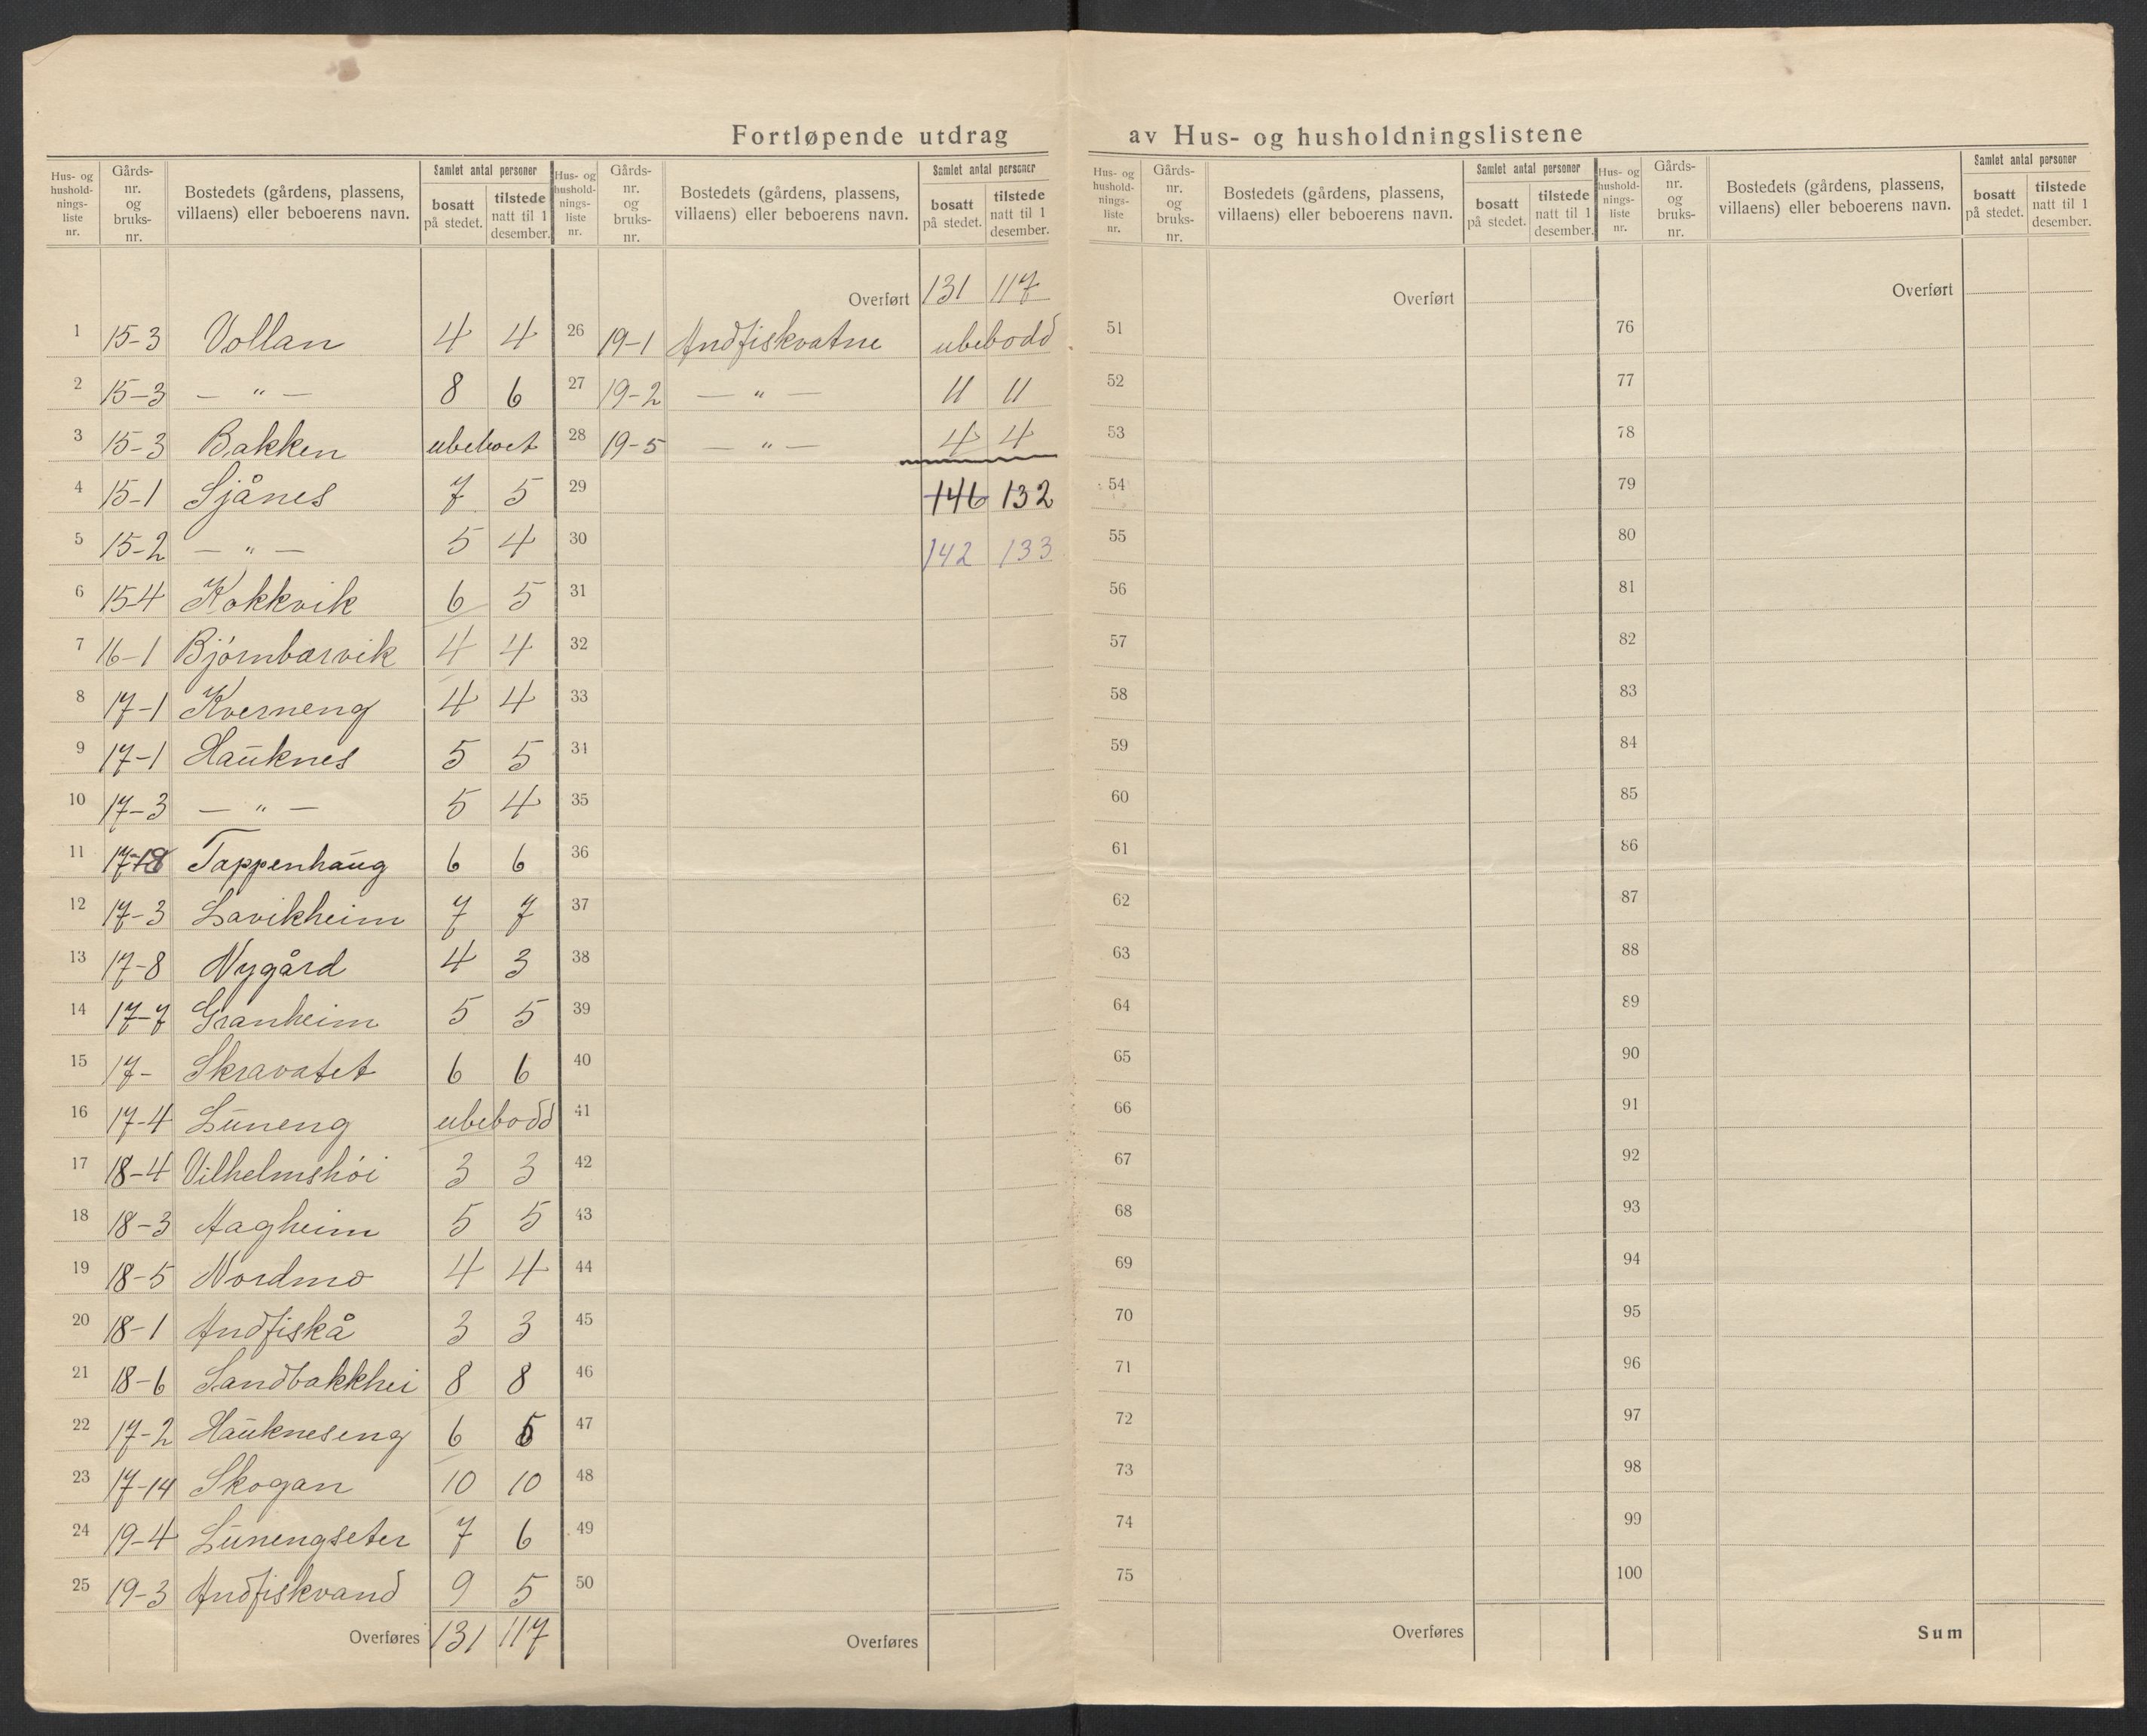 Fortløpende utdrag av Hus- og husholdningslistene
Hus- og hushold- nings- liste nr. | Gårds- nr. og bruks- nr. | Bostedets (gårdens, plassens, villaens) eller beboerens navn. | Samlet antal personer | bosatt på stedet. | tilstede natt til 1 desember.
1 15-3 Vollan 4 4
2 15-3 — " — 8 6
3 15-3 Bakken ubeboet
4 15-1 Sjånes 7 5
5 15-2 — " — 5 4
6 15-4 Kokkvik 6 5
7 16-1 Bjørnbærvik 4 4
8 17-1 Kverneng 4 4
9 17-1 Hauknes 5 5
10 17-3 — " — 5 4
11 Tappenhaug 6 6
12 17-3 Lavikheim 7 7
13 17-8 Nygård 4 3
14 17-7 Granheim 5 5
15 17- Skravatet 6 6
16 17-4 Luneng ubebodd
17 18-4 Vilhelmshöi 3 3
18 18-3 Aagheim 5 5
19 18-5 Nordmo 4 4
20 18-1 Andfiskå 3 3
21 18-6 Sandbakkhei 8 8
22 17-2 Haukneseng 6 5
23 17-14 Skogan 10 10
24 19-4 Lunengseter 7 6
25 19-3 Andfiskvand 9 5
Overføres 131 117
Hus- og hushold- nings- liste nr. | Gårds- nr. og bruks- nr. | Bostedets (gårdens, plassens, villaens) eller beboerens navn. | Samlet antal personer | bosatt på stedet. | tilstede natt til 1 desember.
Overført 131 117
26 19-1 Andfiskvatne ubebodd
27 19-2 — " — 11 11
28 19-5 — " — 4 4
29 146 132
30 142 133
31
32
33
34
35
36
37
38
39
40
41
42
43
44
45
46
47
48
49
50
Overføres
Hus- og hushold- nings- liste nr. | Gårds- nr. og bruks- nr. | Bostedets (gårdens, plassens, villaens) eller beboerens navn. | Samlet antal personer | bosatt på stedet. | tilstede natt til 1 desember.
Overført
51
52
53
54
55
56
57
58
59
60
61
62
63
64
65
66
67
68
69
70
71
72
73
74
75
Overføres
Hus- og hushold- nings- liste nr. | Gårds- nr. og bruks- nr. | Bostedets (gårdens, plassens, villaens) eller beboerens navn. | Samlet antal personer | bosatt på stedet. | tilstede natt til 1 desember.
Overført
76
77
78
79
80
81
82
83
84
85
86
87
88
89
90
91
92
93
94
95
96
97
98
99
100
Sum